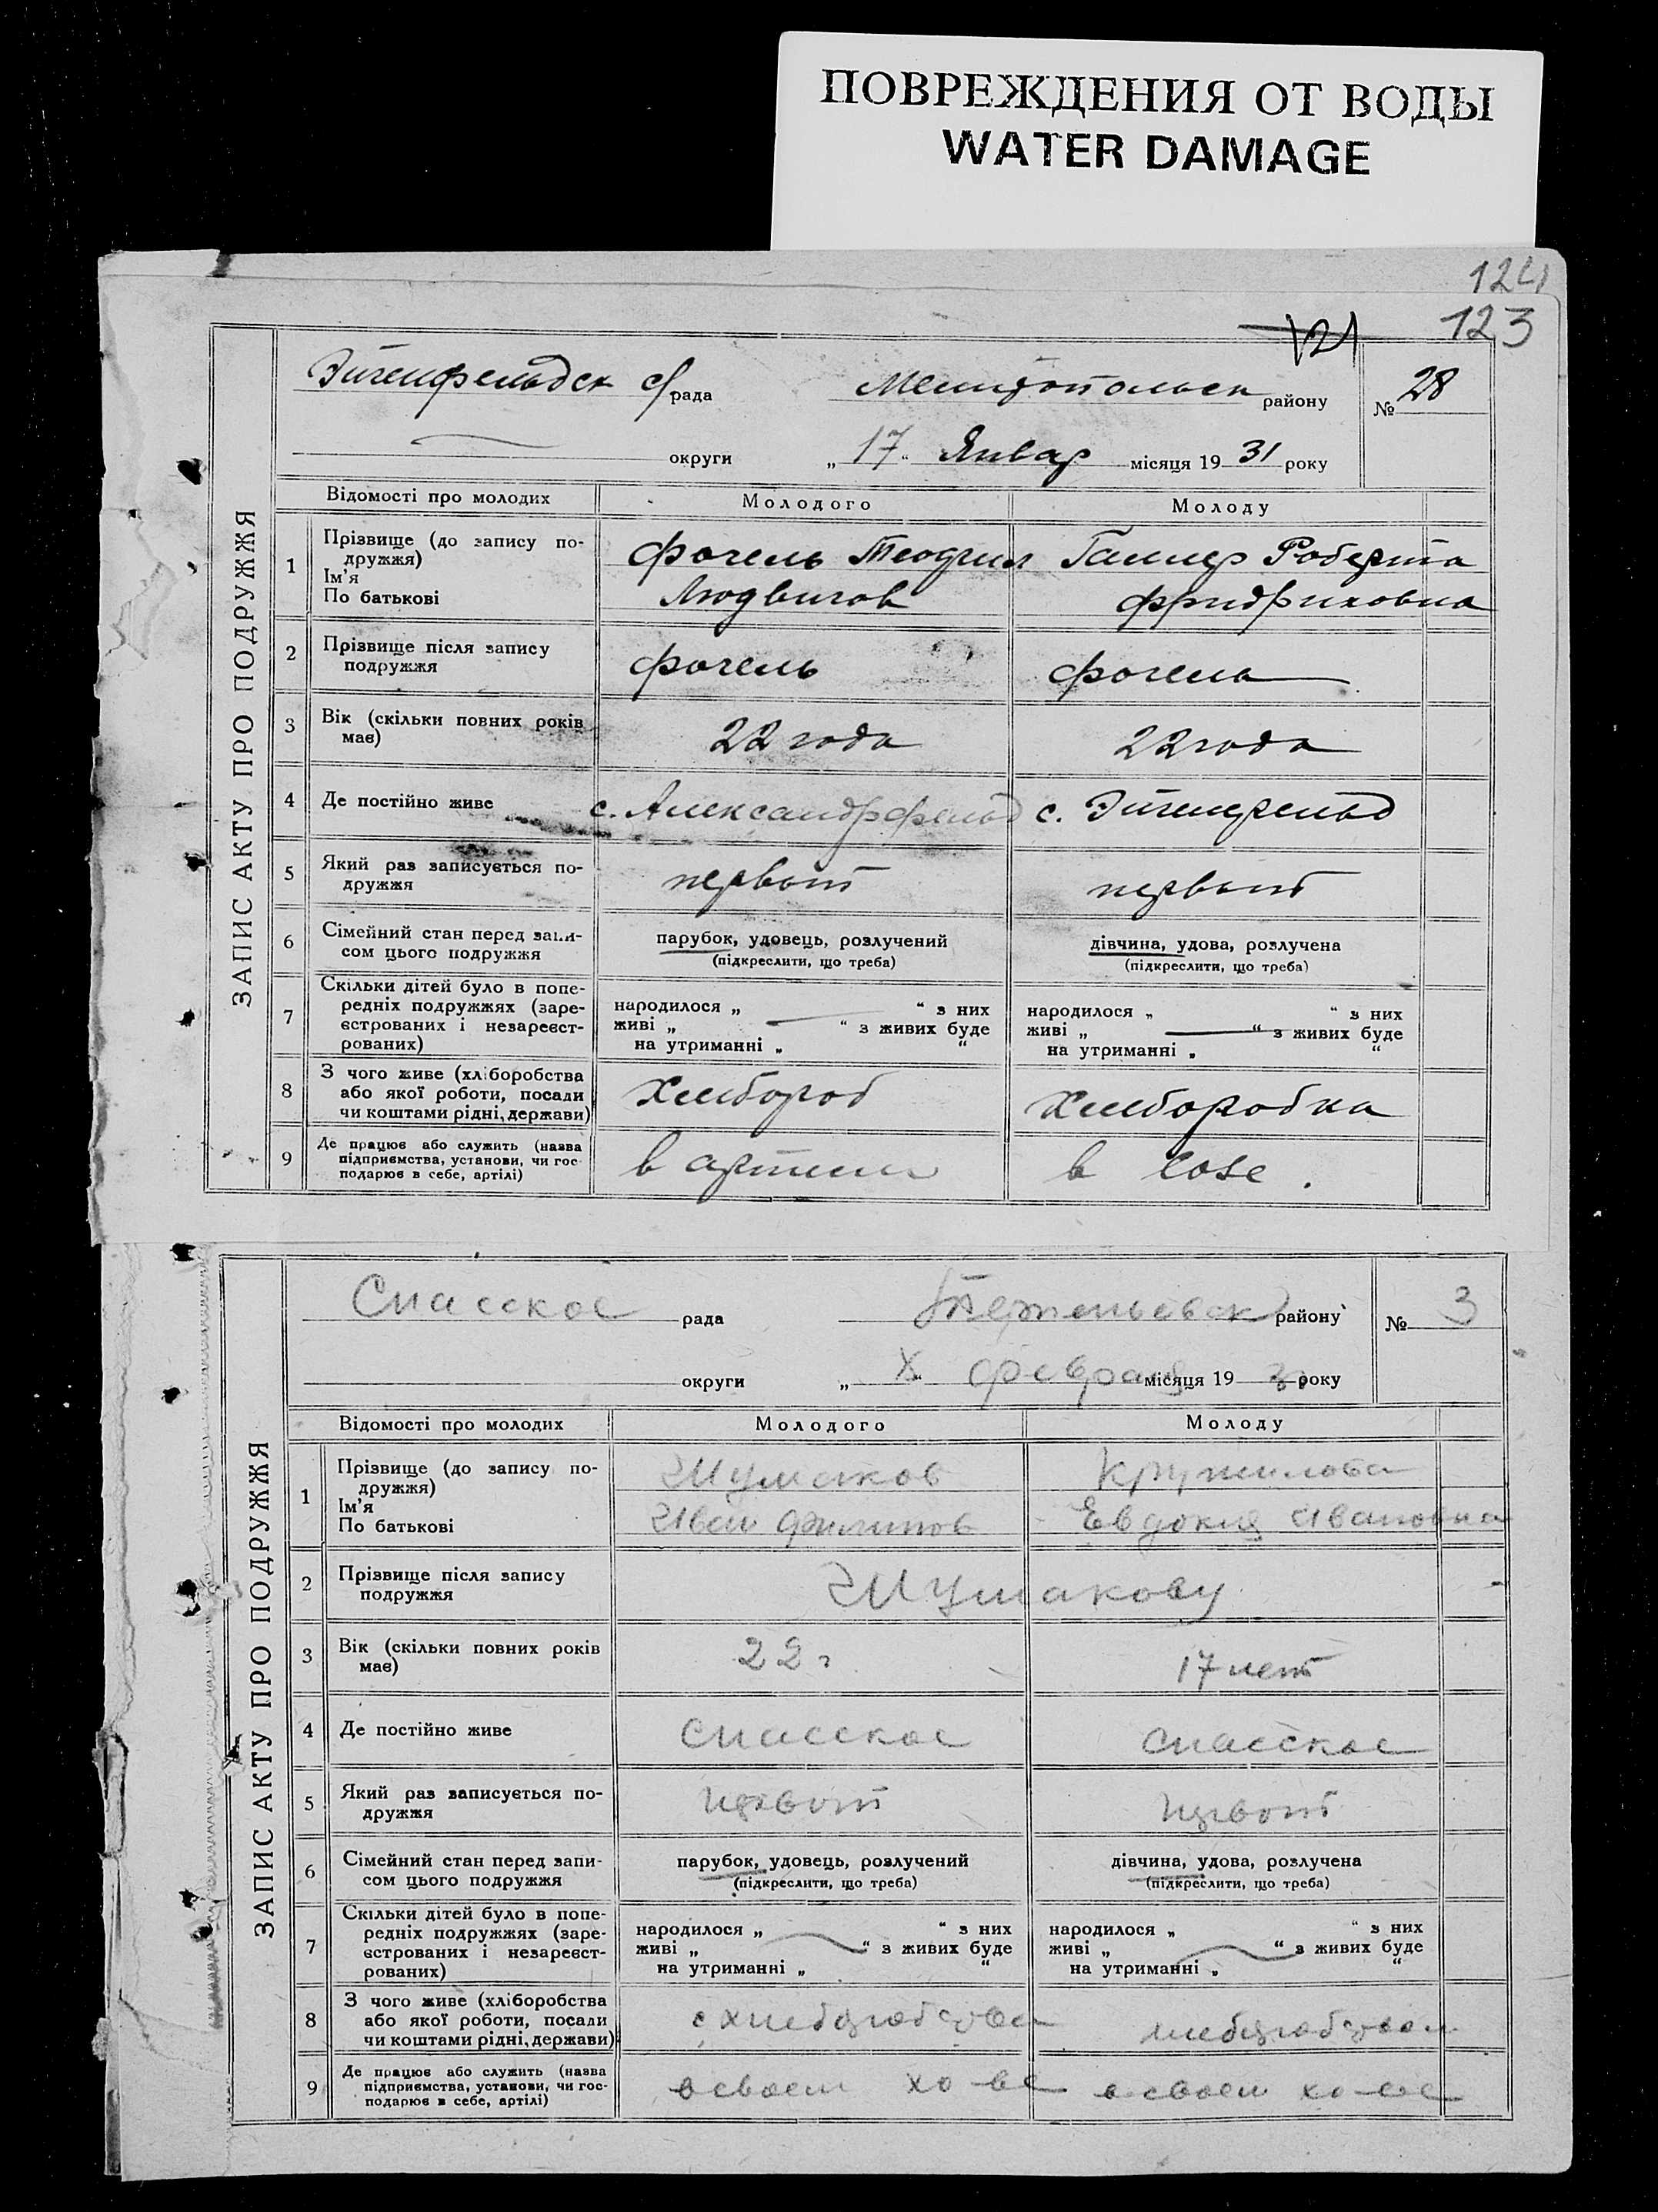 ПОВРЕЖДЕНИЯ ОТ ВОДЫ
WATER DAMAGE
124
123
121
ЗАПИС АКТУ ПРО ПОДРУЖЖЯ
Эйгенфельдск с/рада Мелитопольск району № 28
округи „17“ Январ місяця 1931 року
Відомості про молодих Молодого Молоду
1 Прізвище (до запису подружжя) Ім'я По батькові
Фогель Теофил Геллер Роберта
Людвигов Фридриховна
2 Прізвище після запису подружжя Фогель Фогель
3 Вік (скільки повних років має) 22 года 22 года
4 Де постійно живе с. Александрфельд с. Эйгенфельд
5 Який раз записується подружжя первый первый
6 Сімейний стан перед записом цього подружжя парубок, удовець, розлучений дівчина, удова, розлучена
(підкреслити, що треба) (підкреслити, що треба)
7 Скільки дітей було в попередніх подружжях (зареєстрованих і незареєстрованих)
народилося „ “ з них народилося „ “ з них
живі „ “ з живих буде живі „ “ з живих буде
на утриманні „ “ на утриманні „ “
8 З чого живе (хліборобства або якої роботи, посади чи коштами рідні, держави) Хлибороб Хлиборобка
9 Де працює або служить (назва підприємства, установи, чи господарює в себе, артілі) в артели в
ЗАПИС АКТУ ПРО ПОДРУЖЖЯ
Спасское рада району № 3
округи „ “ февраля місяця 19 року
Відомості про молодих Молодого Молоду
1 Прізвище (до запису подружжя) Ім'я По батькові
Шумаков Кружилова
Иван Филипов Евдокия Ивановна
2 Прізвище після запису подружжя Шумакову
3 Вік (скільки повних років має) 22 г 17 лет
4 Де постійно живе Спасское Спасское
5 Який раз записується подружжя первый первый
6 Сімейний стан перед записом цього подружжя парубок, удовець, розлучений дівчина, удова, розлучена
(підкреслити, що треба) (підкреслити, що треба)
7 Скільки дітей було в попередніх подружжях (зареєстрованих і незареєстрованих)
народилося „ “ з них народилося „ “ з них
живі „ “ з живих буде живі „ “ з живих буде
на утриманні „ “ на утриманні „ “
8 З чого живе (хліборобства або якої роботи, посади чи коштами рідні, держави)
9 Де працює або служить (назва підприємства, установи, чи господарює в себе, артілі) в своем хо-ве в своем хо-ве